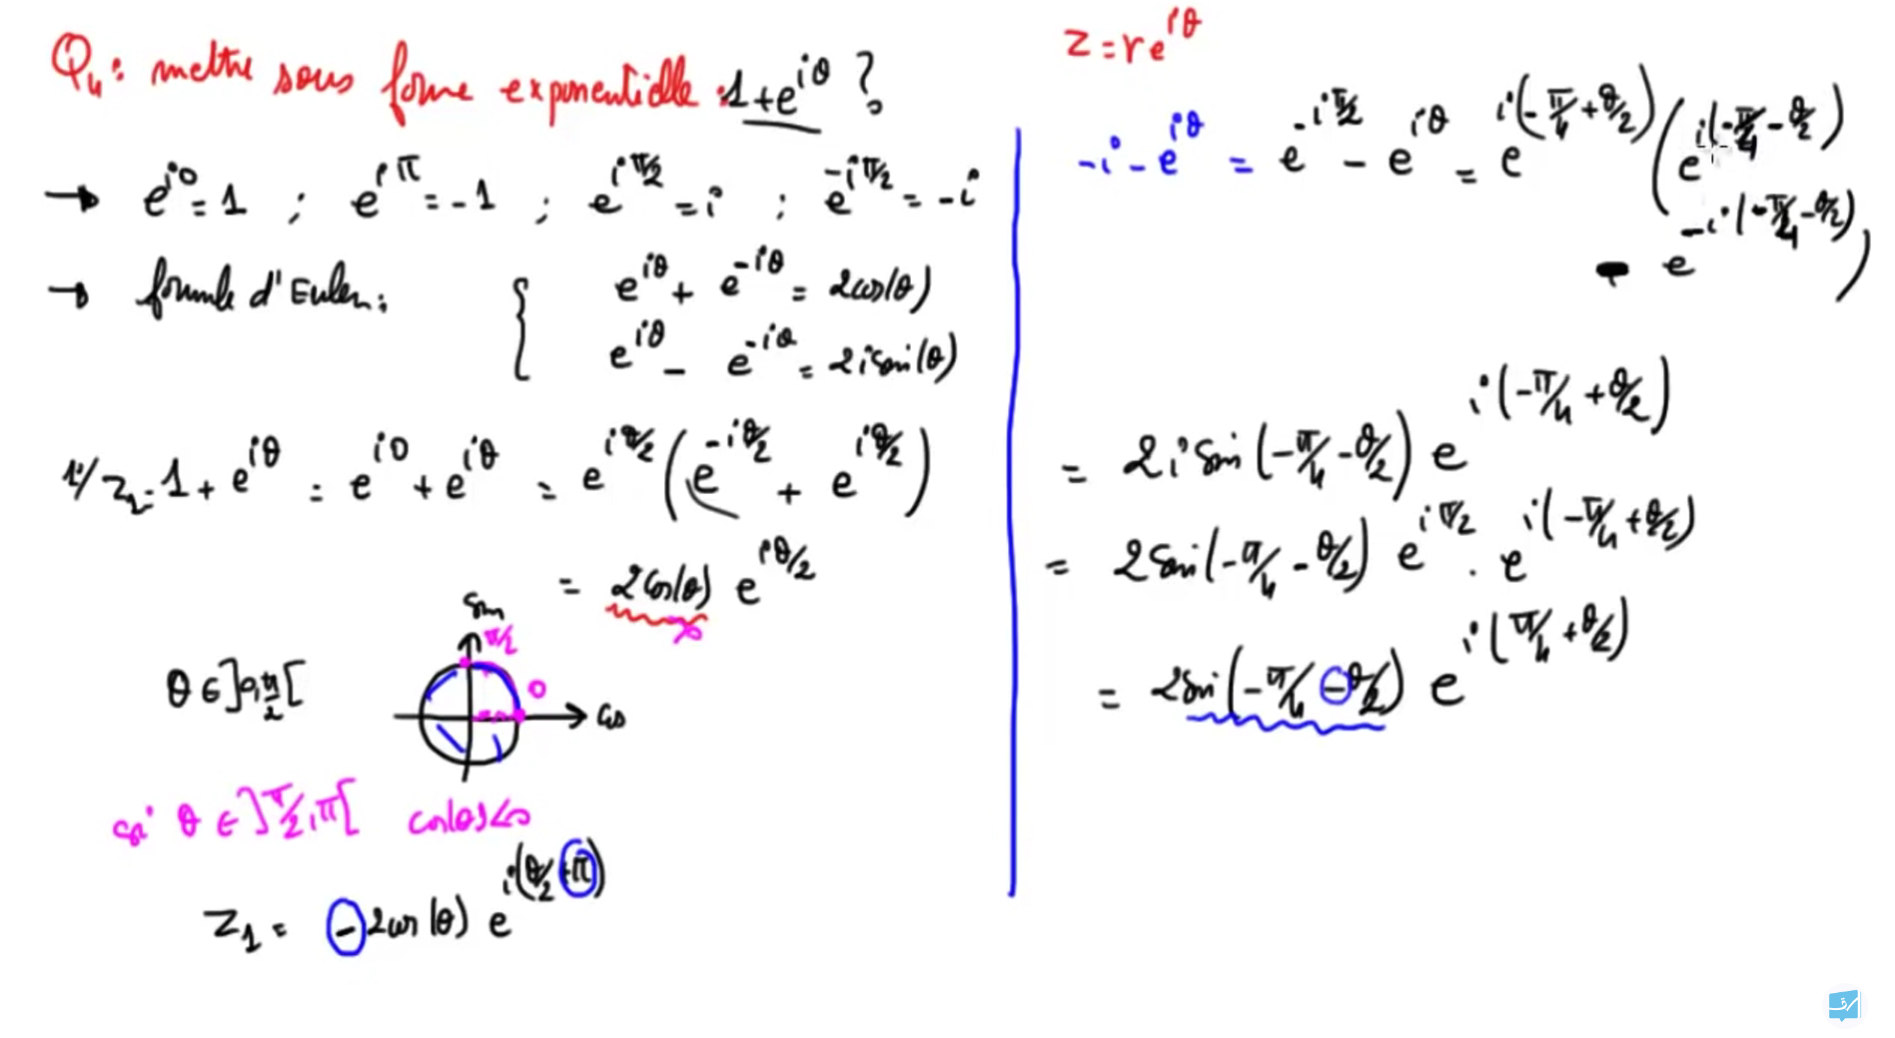 Q4: mettre sous forme exponentielle : 1+e^{iθ} ?
→ e^{i0} = 1 ; e^{iπ} = -1 ; e^{iπ/2} = i ; e^{-iπ/2} = -i
→ formule d'Euler: { e^{iθ} + e^{-iθ} = 2cos(θ)
e^{iθ} - e^{-iθ} = 2i sin(θ)
1°/ z_1 = 1 + e^{iθ} = e^{i0} + e^{iθ} = e^{iθ/2} ( e^{-iθ/2} + e^{iθ/2} )
= 2cos(θ) e^{iθ/2}
sin
π/2
θ ∈ ]0, π/2[
0
cos
si θ ∈ ]π/2, π[ cos(θ) < 0
z_1 = -2cos(θ) e^{i(θ/2 + π)}
z = re^{iθ}
-i - e^{iθ} = e^{-iπ/2} - e^{iθ} = e^{i(-π/4 + θ/2)} ( e^{i(-π/4 - θ/2)}
- e^{-i(-π/4 - θ/2)} )
= 2i sin(-π/4 - θ/2) e^{i(-π/4 + θ/2)}
= 2 sin(-π/4 - θ/2) e^{iπ/2} . e^{i(-π/4 + θ/2)}
= 2 sin(-π/4 - θ/2) e^{i(π/4 + θ/2)}